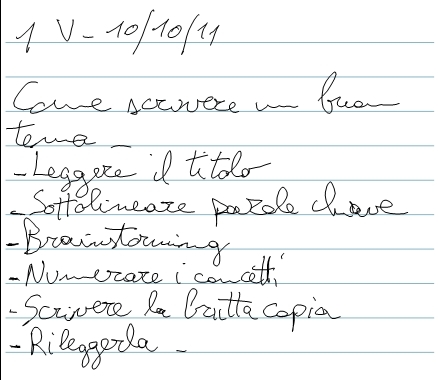 1 V - 10/10/11
Come scrivere un buon
tema -
- Leggere il titolo
- Sottolineare parole chiave
- Brainstorming
- Numerare i concetti
- Scrivere la brutta copia
- Rileggerla -